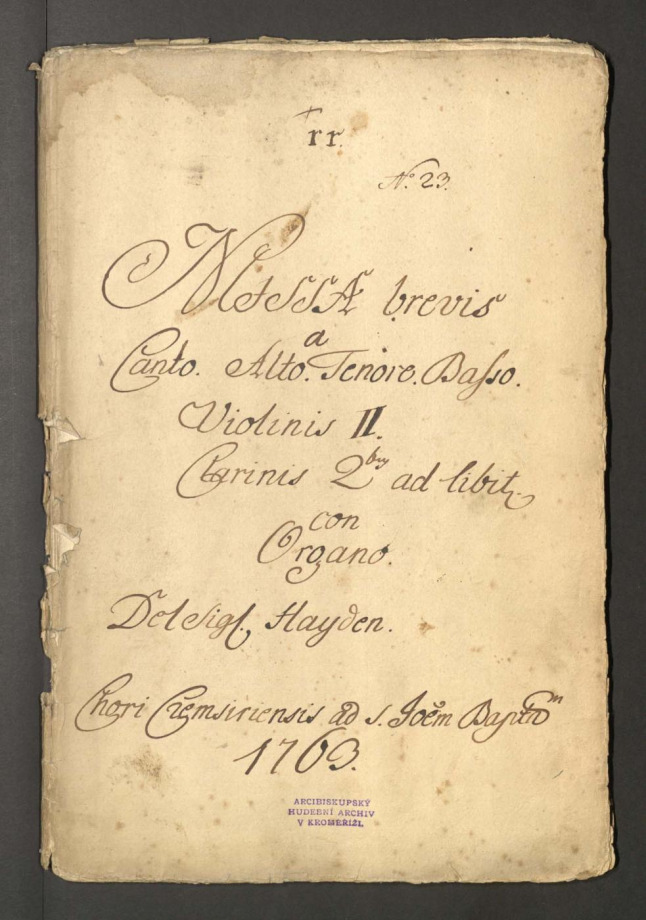 rr.
No. 23.
MESSA brevis
a
Canto. Alto. Tenore. Basso.
Violinis II.
Clarinis 2bus ad libit.
con
Organo.
Del Sigl. Hayden.
Chori Cremsiriensis ad S. Joẽm Bapt̃m
1763.
ARCIBISKUPSKÝ
HUDEBNÍ ARCHIV
V KROMĚŘÍŽI.